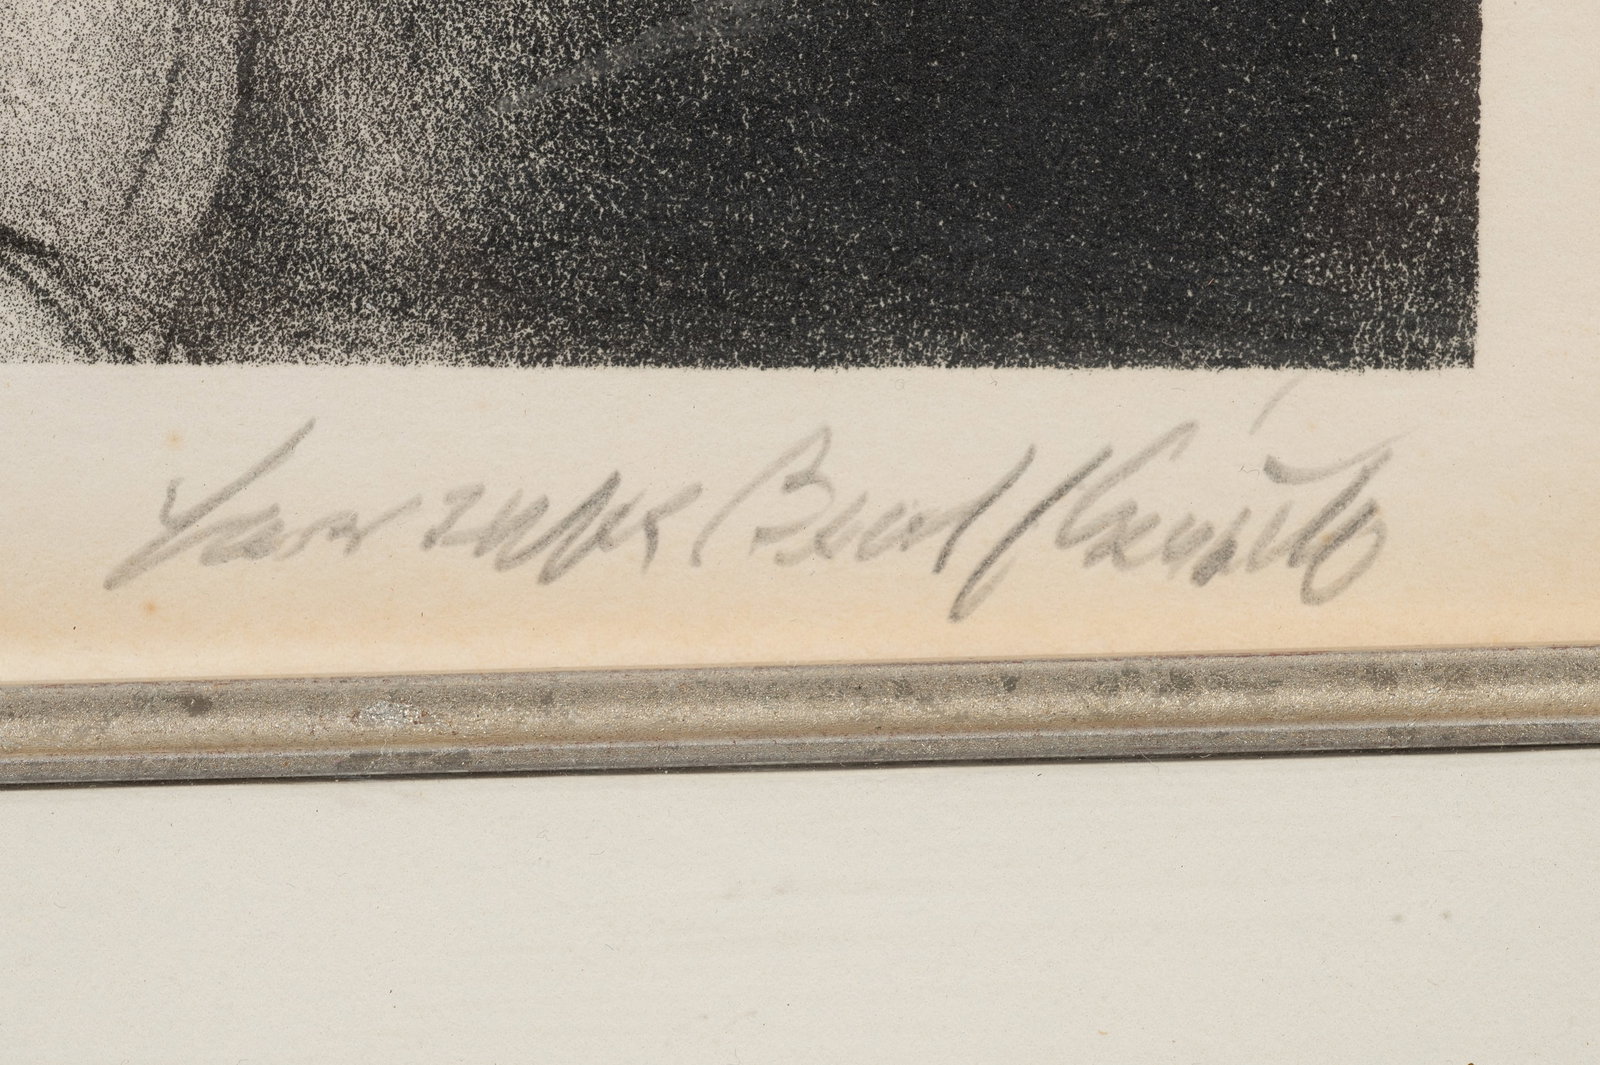 Lawrence Beall Smith